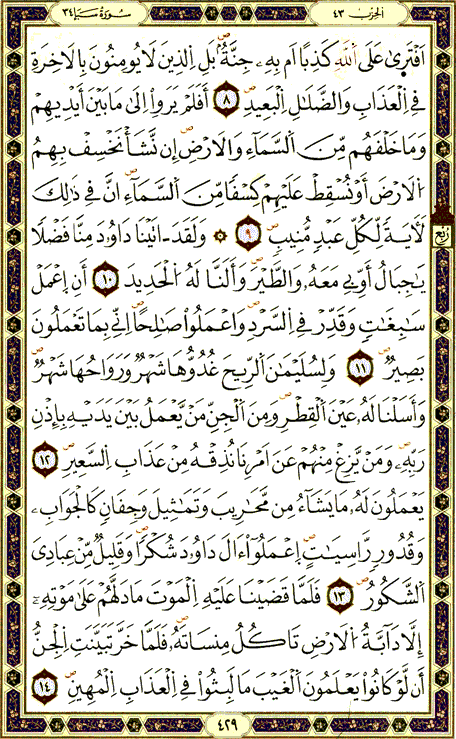 الحزب ٤٣
سُورَةُ سَبَإٍ ٣٤
اَفْتَرٜىٰ عَلَى اَللَّهِ كَذِباً اَم بِهِۦ جِنَّةُۢۖ بَلِ اِلذِينَ لَا يُومِنُونَ بِالَاخِرَةِ
فِے اِلْعَذَابِ وَالضَّلَٰلِ اِلْبَعِيدِۖ ٨ أَفَلَمْ يَرَوِا اِلَىٰ مَا بَيْنَ أَيْدِيهِمْ
وَمَا خَلْفَهُم مِّنَ اَلسَّمَآءِ وَالَارْضِ إِن نَّشَأْ نَخْسِفْ بِهِمُ
اُلَارْضَ أَوْ نُسْقِطْ عَلَيْهِمْ كِسْفاً مِّنَ اَلسَّمَآءِۖ انَّ فِے ذَٰلِكَ
لَأٓيَةً لِّكُلِّ عَبْدٍ مُّنِيبٍۖ ٩ ۞ وَلَقَدَ اٰتَيْنَا دَاوُۥدَ مِنَّا فَضْلاً
يَٰجِبَالُ أَوِّبِے مَعَهُۥ وَالطَّيْرَۖ وَأَلَنَّا لَهُ اُلْحَدِيدَ ١٠ أَنِ اِعْمَلْ
سَٰبِغَٰتٍ وَقَدِّرْ فِے اِلسَّرْدِۖ وَاعْمَلُوا صَٰلِحاًۖ اِنِّے بِمَا تَعْمَلُونَ
بَصِيرٌۖ ١١ وَلِسُلَيْمَٰنَ اَلرِّيحَ غُدُوُّهَا شَهْرٌ وَرَوَاحُهَا شَهْرٌۖ
وَأَسَلْنَا لَهُۥ عَيْنَ اَلْقِطْرِۖ وَمِنَ اَلْجِنِّ مَنْ يَّعْمَلُ بَيْنَ يَدَيْهِ بِإِذْنِ
رَبِّهِۦۖ وَمَنْ يَّزِغْ مِنْهُمْ عَنَ اَمْرِنَا نُذِقْهُ مِنْ عَذَابِ اِلسَّعِيرِۖ ١٢
يَعْمَلُونَ لَهُۥ مَا يَشَآءُ مِن مَّحَٰرِيبَ وَتَمَٰثِيلَ وَجِفَانٍ كَالْجَوَابِۦ
وَقُدُورٍ رَّاسِيَٰتٍۖ اِعْمَلُوٓا ءَالَ دَاوُۥدَ شُكْراًۖ وَقَلِيلٌ مِّنْ عِبَادِيَ
اَلشَّكُورُۖ ١٣ فَلَمَّا قَضَيْنَا عَلَيْهِ اِلْمَوْتَ مَا دَلَّهُمْ عَلَىٰ مَوْتِهِۦٓ
إِلَّا دَآبَّةُ اُلَارْضِ تَاكُلُ مِنسَاتَهُۥۖ فَلَمَّا خَرَّ تَبَيَّنَتِ اِلْجِنُّ
أَن لَّوْ كَانُوا يَعْلَمُونَ اَلْغَيْبَ مَا لَبِثُوا فِے اِلْعَذَابِ اِلْمُهِينِۖ ١٤
ربع
٤٢٩